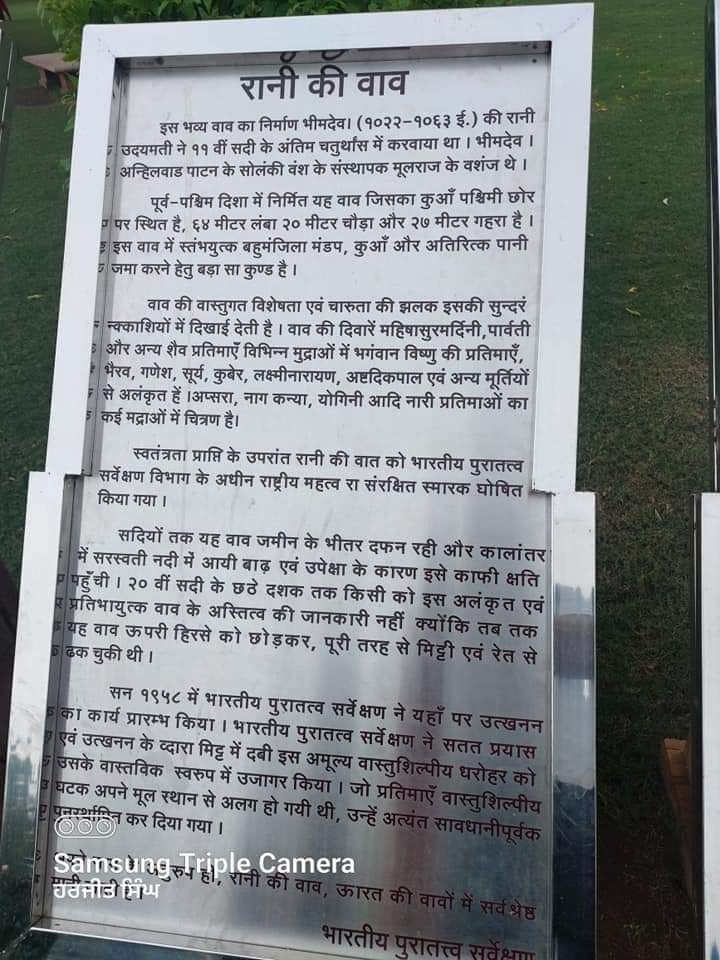 रानी की वाव
इस भव्य वाव का निर्माण भीमदेव। (१०२२-१०६३ ई.) की रानी
उदयमती ने ११ वीं सदी के अंतिम चतुर्थांस में करवाया था । भीमदेव ।
अन्हिलवाड पाटन के सोलंकी वंश के संस्थापक मूलराज के वशंज थे ।
पूर्व-पश्चिम दिशा में निर्मित यह वाव जिसका कुआँ पश्चिमी छोर
पर स्थित है, ६४ मीटर लंबा २० मीटर चौड़ा और २७ मीटर गहरा है ।
इस वाव में स्तंभयुत्क बहुमंजिला मंडप, कुआँ और अतिरित्क पानी
जमा करने हेतु बड़ा सा कुण्ड है ।
वाव की वास्तुगत विशेषता एवं चारुता की झलक इसकी सुन्दरं
नक्काशियों में दिखाई देती है । वाव की दिवारें महिषासुरमर्दिनी,पार्वती
और अन्य शैव प्रतिमाएँ विभिन्न मुद्राओं में भगंवान विष्णु की प्रतिमाएँ,
भैरव, गणेश, सूर्य, कुबेर, लक्ष्मीनारायण, अष्टदिकपाल एवं अन्य मूर्तियों
से अलंकृत हें ।अप्सरा, नाग कन्या, योगिनी आदि नारी प्रतिमाओं का
कई मद्राओं में चित्रण है।
स्वतंत्रता प्राप्ति के उपरांत रानी की वात को भारतीय पुरातत्त्व
सर्वेक्षण विभाग के अधीन राष्ट्रीय महत्व रा संरक्षित स्मारक घोषित
किया गया ।
सदियों तक यह वाव जमीन के भीतर दफन रही और कालांतर
में सरस्वती नदी में आयी बाढ़ एवं उपेक्षा के कारण इसे काफी क्षति
पहुँची । २० वीं सदी के छठे दशक तक किसी को इस अलंकृत एवं
प्रतिभायुत्क वाव के अस्तित्व की जानकारी नहीं क्योंकि तब तक
यह वाव ऊपरी हिरसे को छोड़कर, पूरी तरह से मिट्टी एवं रेत से
ढक चुकी थी ।
सन १९५८ में भारतीय पुरातत्व सर्वेक्षण ने यहाँ पर उत्खनन
का कार्य प्रारम्भ किया । भारतीय पुरातत्व सर्वेक्षण ने सतत प्रयास
एवं उत्खनन के व्दारा मिट्ट में दबी इस अमूल्य वास्तुशिल्पीय धरोहर को
उसके वास्तविक स्वरुप में उजागर किया । जो प्रतिमाएँ वास्तुशिल्पीय
घटक अपने मूल स्थान से अलग हो गयी थी, उन्हें अत्यंत सावधानीपूर्वक
कर दिया गया ।
रानी की वाव, ऊारत की वावों में सर्वश्रेष्ठ
भारतीय पुरातत्त्व सर्वेक्षण
Samsung Triple Camera
ਹਰਜੀਤ ਸਿੰਘ